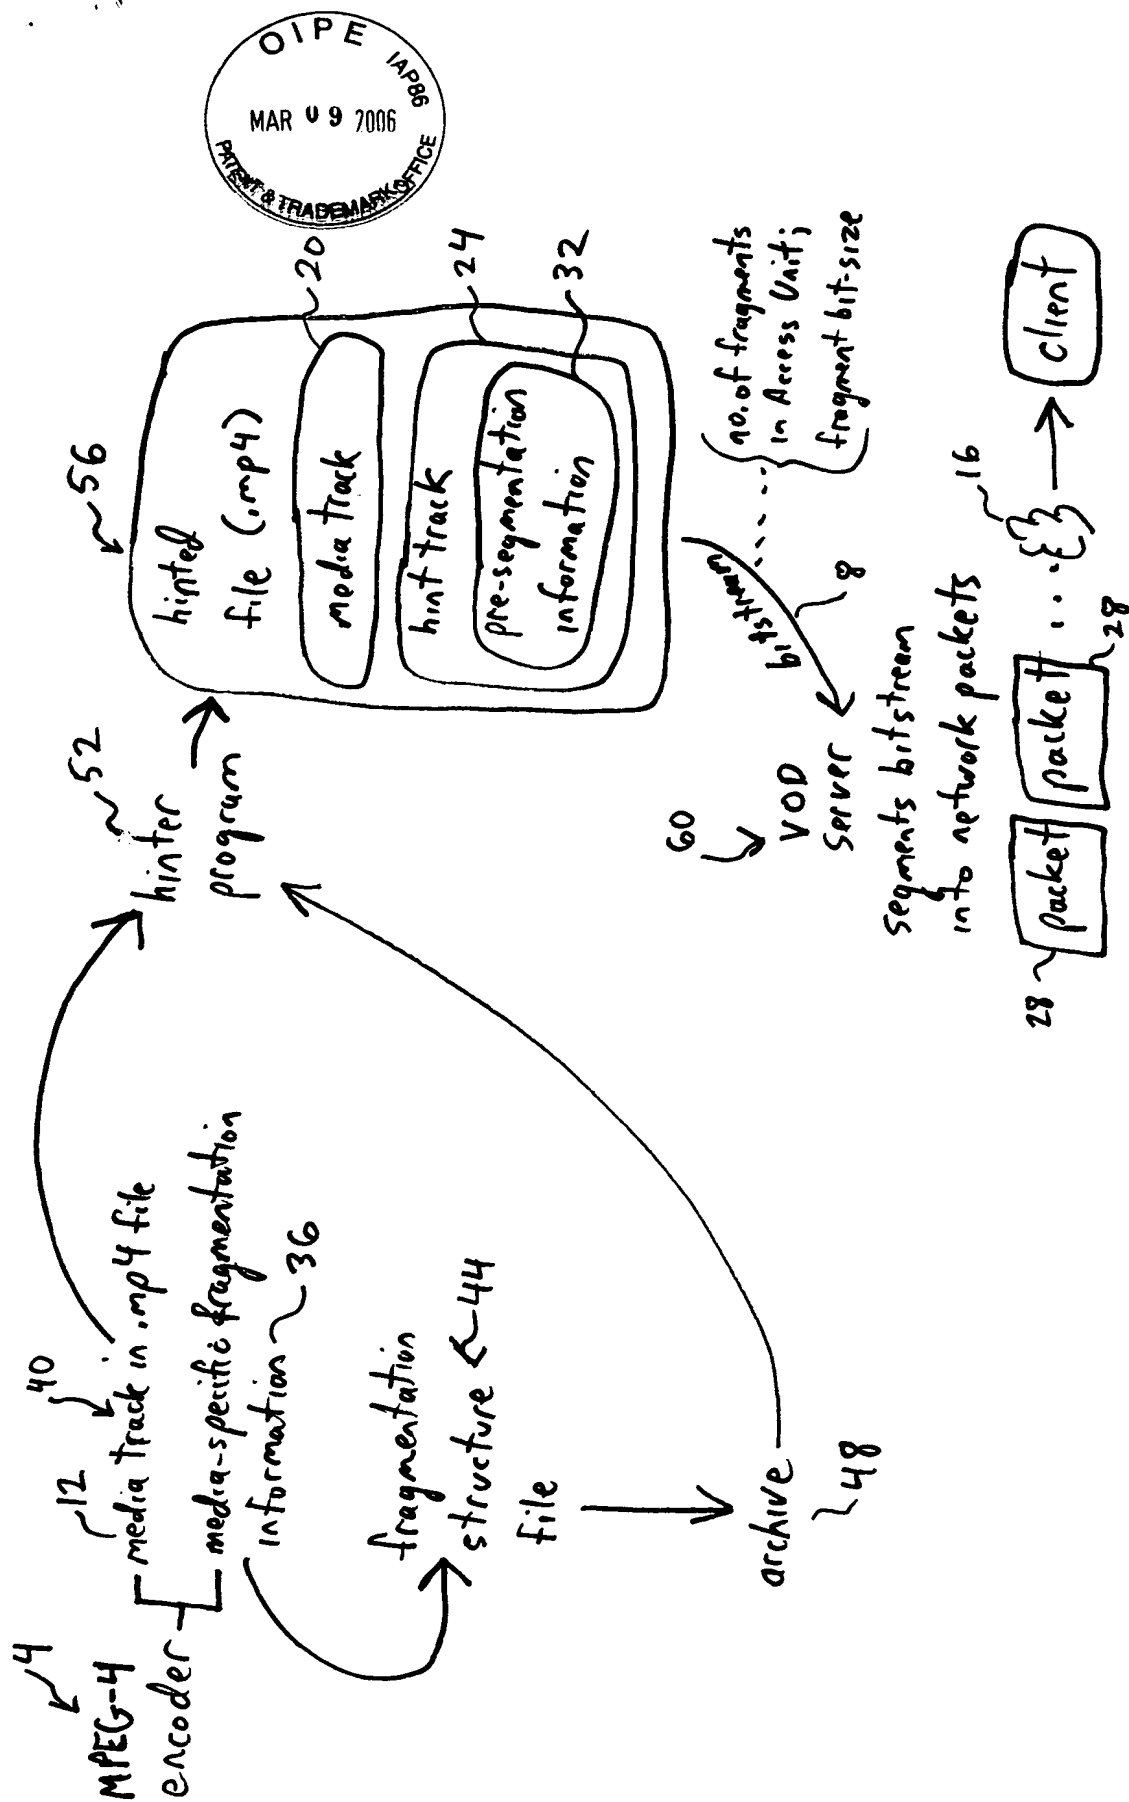 OIPE
IAP86
MAR 09 2006
PATENT & TRADEMARK OFFICE
4
MPEG-4
encoder
12
40
media track in .mp4 file
media-specific fragmentation
information
36
fragmentation
structure
file
44
archive
48
52
hinter
program
56
hinted
file (.mp4)
media track
20
hint track
24
pre-segmentation
information
32
bitstream
8
no. of fragments
in Access Unit;
fragment bit-size
60
VOD
Server
segments bitstream
into network packets
28
packet
packet
28
...
16
client